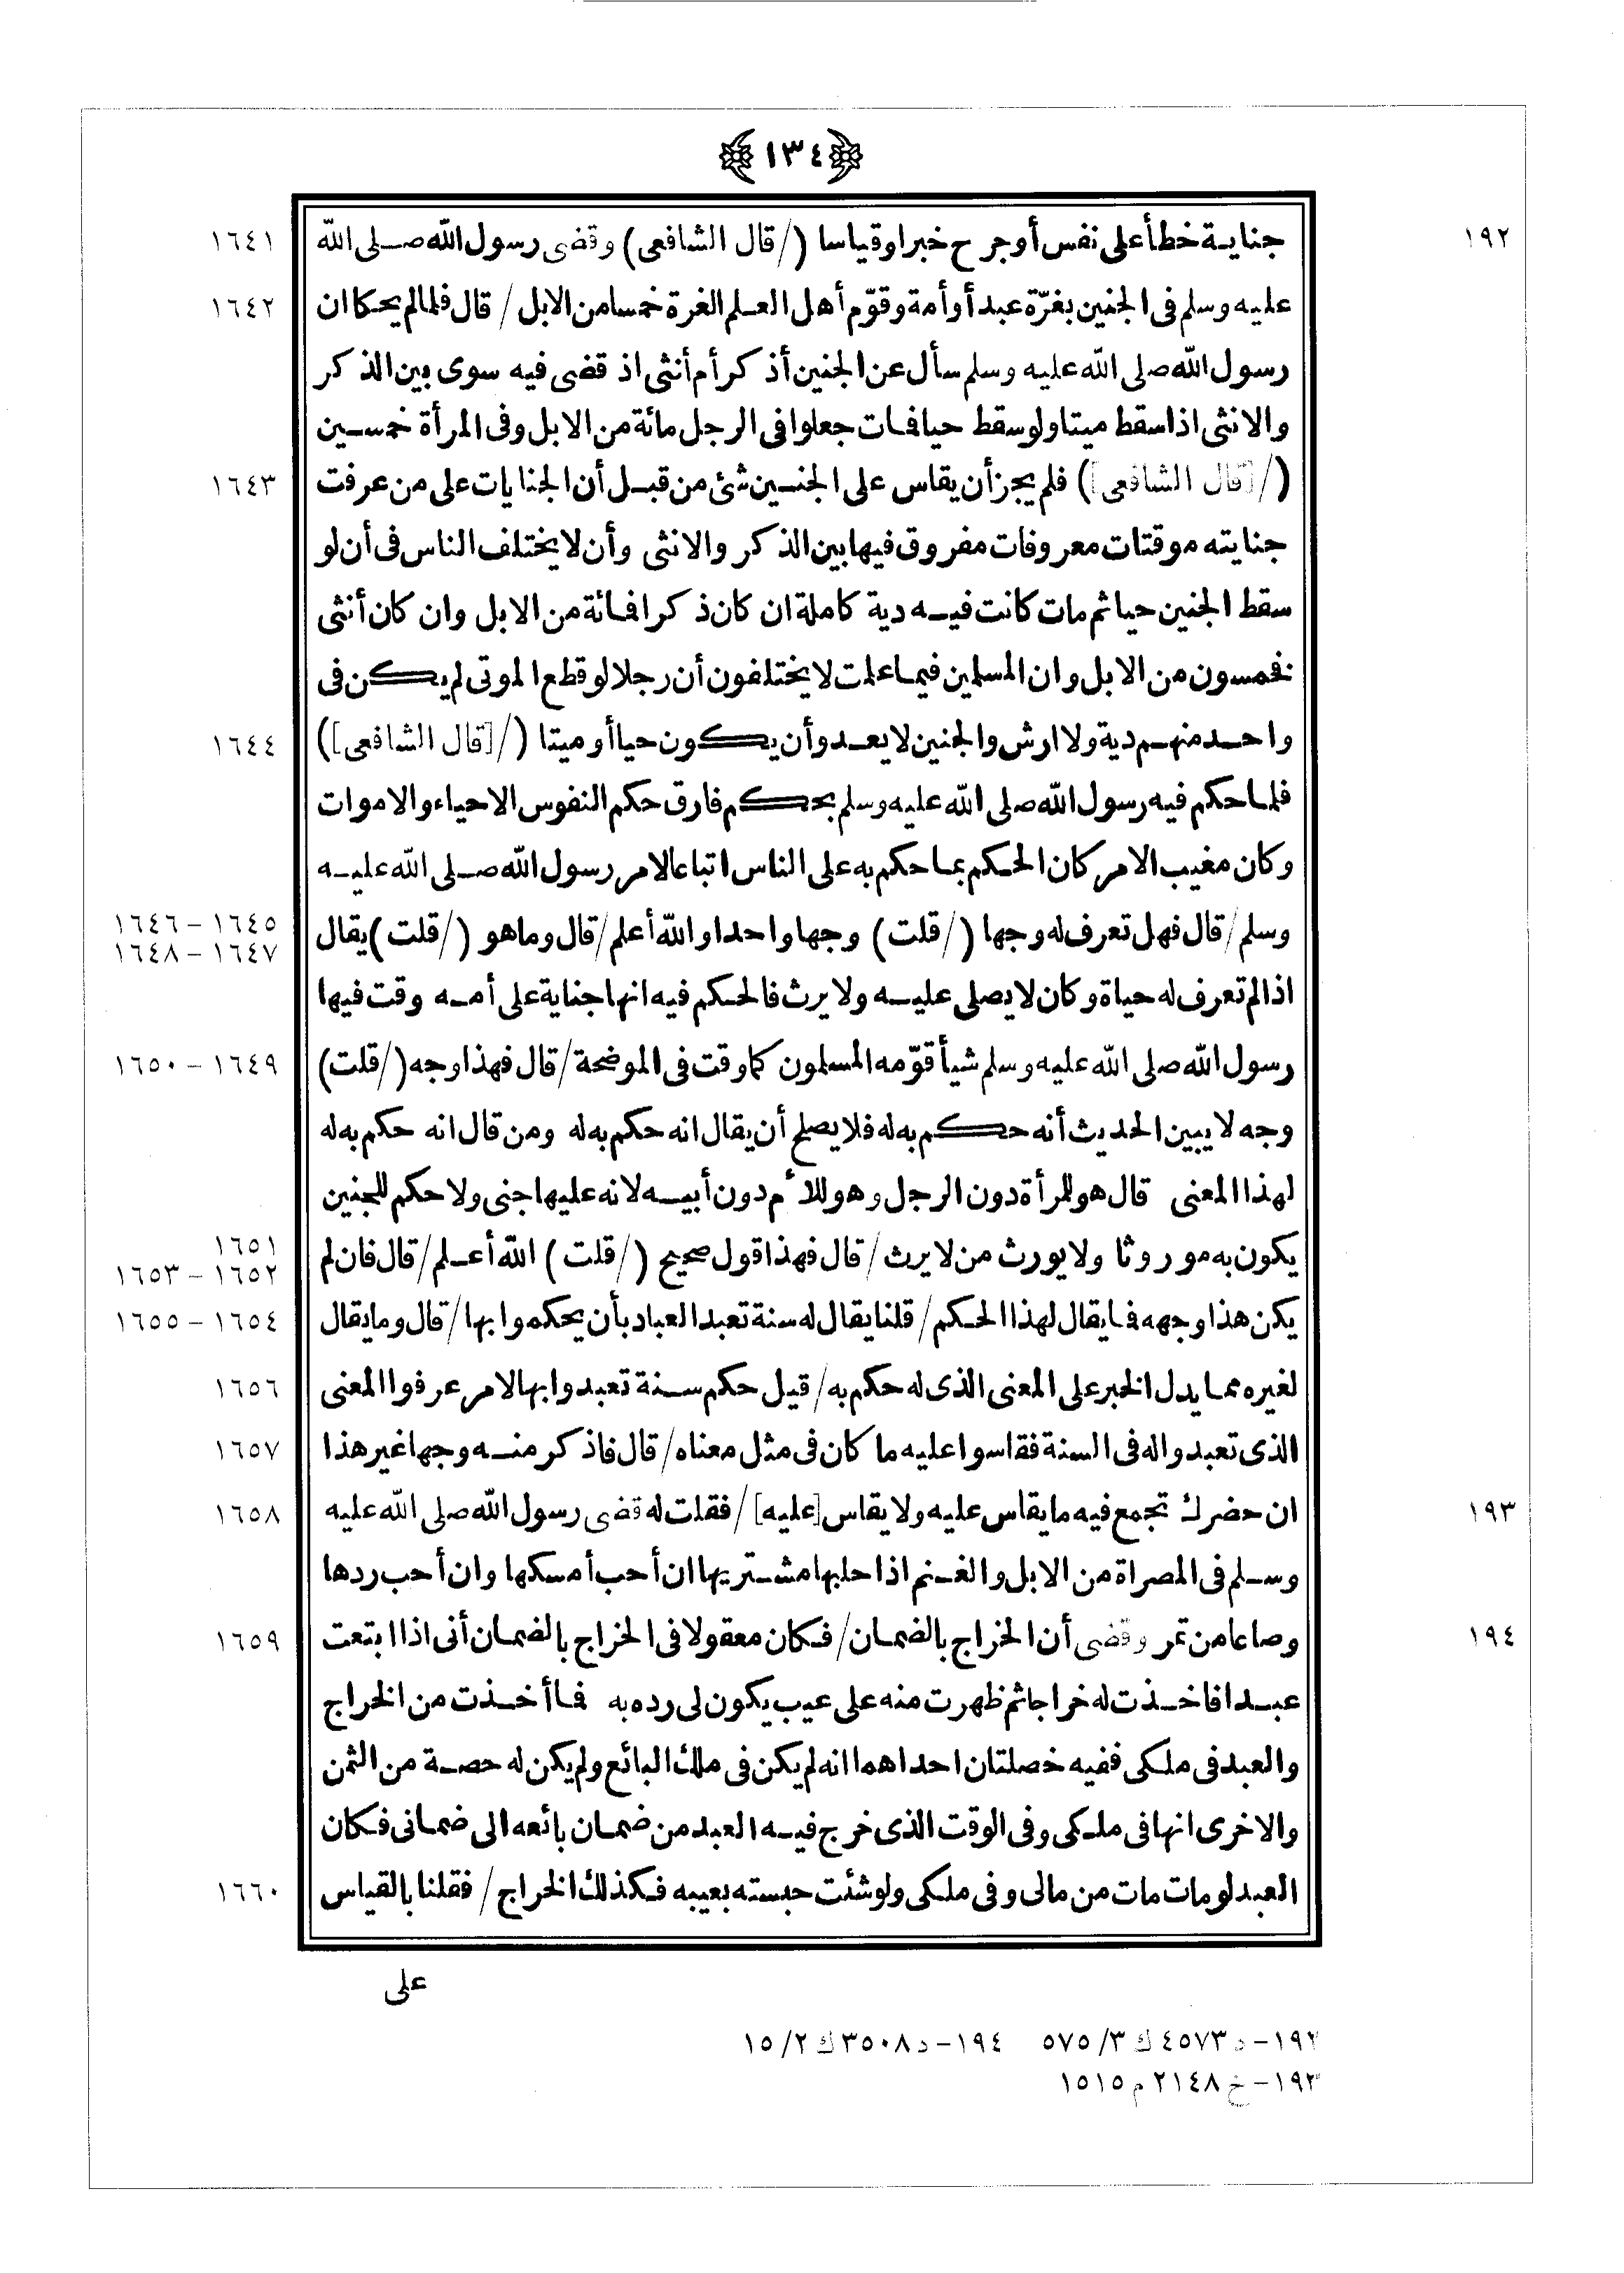 ١٣٤
١٩٢ جناية خطأ على نفس أو جرح خبرا وقياسا (/ قال الشافعى) وقضى رسول الله صلى الله ١٦٤١
عليه وسلم فى الجنين بغرّة عبد أو أمة وقوّم أهل العلم الغرة خمسا من الابل / قال فلما لم يحكا ان ١٦٤٢
رسول الله صلى الله عليه وسلم سأل عن الجنين أذكر أم أنثى اذ قضى فيه سوى بين الذكر
والانثى اذا سقط ميتا ولو سقط حيا فمات جعلوا فى الرجل مائة من الابل وفى المرأة خمسين
(/[قال الشافعى]) فلم يجز أن يقاس على الجنين شئ من قبل أن الجنايات على من عرفت ١٦٤٣
جنايته موقتات معروفات مفروق فيها بين الذكر والانثى وأن لا يختلف الناس فى أن لو
سقط الجنين حيا ثم مات كانت فيه دية كاملة ان كان ذكرا فمائة من الابل وان كان أنثى
فخمسون من الابل وان المسلمين فيما علمت لا يختلفون أن رجلا لو قطع الموتى لم يكن فى
واحد منهم دية ولا ارش والجنين لا يعدو أن يكون حيا أو ميتا (/[قال الشافعى]) ١٦٤٤
فلما حكم فيه رسول الله صلى الله عليه وسلم بحكم فارق حكم النفوس الاحياء والاموات
وكان مغيب الامر كان الحكم بما حكم به على الناس اتباعا لامر رسول الله صلى الله عليه
وسلم / قال فهل تعرف له وجها (/ قلت) وجها واحدا والله أعلم / قال وما هو (/ قلت) يقال ١٦٤٥ - ١٦٤٦
١٦٤٧ - ١٦٤٨
اذا لم تعرف له حياة وكان لا يصلى عليه ولا يرث فالحكم فيه انها جناية على أمه وقت فيها
رسول الله صلى الله عليه وسلم شيأ قوّمه المسلمون كما وقت فى الموضحة / قال فهذا وجه (/ قلت) ١٦٤٩ - ١٦٥٠
وجه لا يبين الحديث أنه حكم به له فلا يصلح أن يقال انه حكم به له ومن قال انه حكم به له
لهذا المعنى قال هو للمرأة دون الرجل وهو للأم دون أبيه لانه عليها جنى ولا حكم للجنين
يكون به موروثا ولا يورث من لا يرث / قال فهذا قول صحيح (/ قلت) الله أعلم / قال فان لم ١٦٥١
١٦٥٢ - ١٦٥٣
يكن هذا وجهه فما يقال لهذا الحكم / قلنا يقال له سنة تعبد العباد بأن يحكموا بها / قال وما يقال ١٦٥٤ - ١٦٥٥
لغيره مما يدل الخبر على المعنى الذى له حكم به / قيل حكم سنة تعبدوا بها لامر عرفوا المعنى ١٦٥٦
الذى تعبدوا له فى السنة فقاسوا عليه ما كان فى مثل معناه / قال فاذكر منه وجها غير هذا ١٦٥٧
١٩٣ ان حضرك تجمع فيه ما يقاس عليه ولا يقاس [عليه] / فقلت له قضى رسول الله صلى الله عليه ١٦٥٨
وسلم فى المصراة من الابل والغنم اذا حلبها مشتريها ان أحب أمسكها وان أحب ردها
١٩٤ وصاعا من تمر وقضى أن الخراج بالضمان / فكان معقولا فى الخراج بالضمان أنى اذا ابتعت ١٦٥٩
عبدا فاخذت له خراجا ثم ظهرت منه على عيب يكون لى رده به فما أخذت من الخراج
والعبد فى ملكى ففيه خصلتان احداهما انه لم يكن فى ملك البائع ولم يكن له حصة من الثمن
والاخرى انها فى ملكى وفى الوقت الذى خرج فيه العبد من ضمان بائعه الى ضمانى فكان
العبد لو مات مات من مالى وفى ملكى ولو شئت حبسته بعيبه فكذلك الخراج / فقلنا بالقياس ١٦٦٠
على
١٩٢ - د ٤٥٧٣ ك ٣/ ٥٧٥ ١٩٤ - د ٣٥٠٨ ك ٢/ ١٥
١٩٣ - خ ٢١٤٨ م ١٥١٥